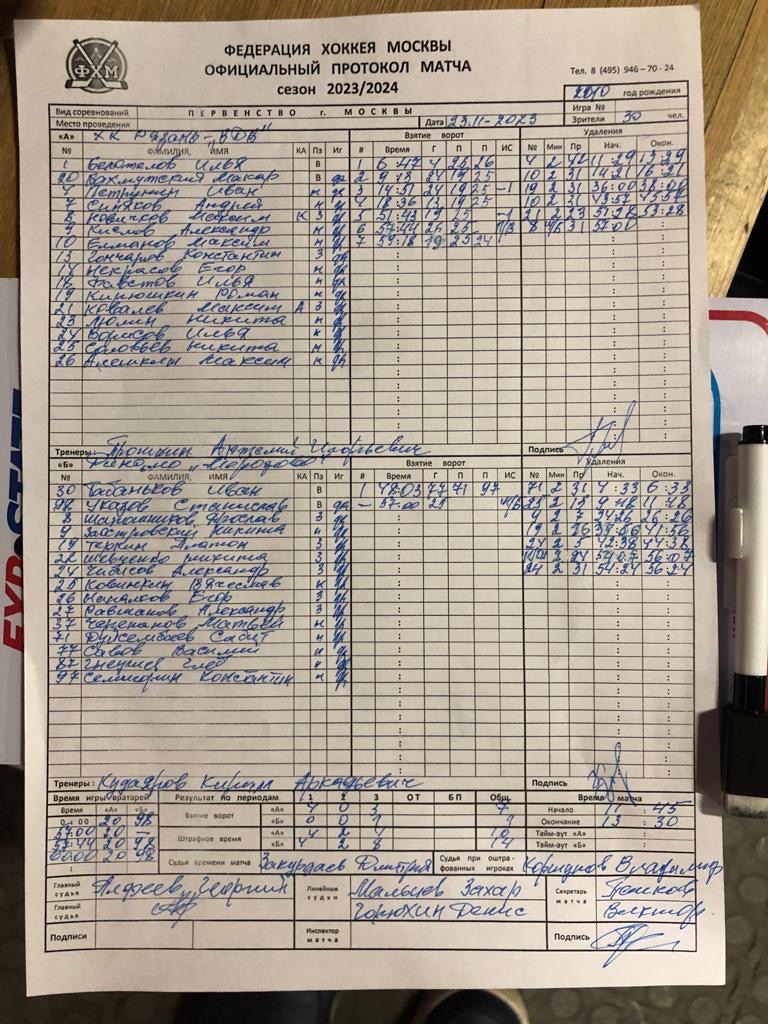 ФЕДЕРАЦИЯ ХОККЕЯ МОСКВЫ
ОФИЦИАЛЬНЫЙ ПРОТОКОЛ МАТЧА
сезон 2023/2024
Тел. 8 (495) 946-70-24
ФХМ
2010 год рождения
Вид соревнований ПЕРВЕНСТВО г. МОСКВЫ Игра №
Место проведения Дата 23.11-2023 Зрители 30 чел.
«А» ХК Рязань-ВДВ" Взятие ворот Удаления
№ ФАМИЛИЯ, ИМЯ КА Пз Иг # Время Г П П ИС № Мин Пр Нач. Окон.
1 Белотелов Илья В 1 6:47 4 25 26 4 2 11:29 13:29
20 Бахмутский Макар В да 2 9:18 24 19 25 10 2 31 14:21 16:21
4 Петрунин Иван н да 3 14:51 24 19 25 -1 19 2 31 36:00 38:00
7 Синяков Андрей н да 4 18:36 13 19 25 10 2 31 43:57 45:57
8 Новичков Максим К З да 5 51:43 19 25 -1 21 2 23 51:28 53:28
9 Кислов Александр н да 6 57:44 26 25 8 31 57:00
10 Елманов Максим н да 7 59:18 19 25 24
13 Гончаров Константин З да
17 Некрасов Егор н да
18 Фаустов Илья н да
19 Кирюшкин Роман н да
21 Ковалев Максим А З да
23 Люлин Никита н да
24 Борисов Илья н да
25 Соловьев Никита н да
26 Алешкин Максим н да
Тренеры: Пронькин Игорьевич Подпись
«Б» Взятие ворот Удаления
№ ФАМИЛИЯ, ИМЯ КА Пз Иг # Время Г П П ИС № Мин Пр Нач. Окон.
30 Табаньков Иван В 1 48:03 77 71 97 71 2 31 4:33 6:33
98 Указов Станислав В да - 57:00 25 2 9:48 11:48
8 Шапошников Ярослав З да 4 2 7 24:26 26:26
9 Никита 19 2 26 39:56 41:56
19 Теркин Платон З да 24 2 5 42:38 44:38
22 Шевченко Никита З да 2 24 54:07 56:07
24 Чибисов Александр З да 24 2 31 54:24 56:24
25 Ковинкин Вячеслав н да
26 Напалков Егор З да
27 Александр З да
37 Черепанов Матвей н да
71 Дуйсембаев Сабит н да
77 Савов Василий н да
87 Глеб н да
97 Константин н да
Тренеры: Кудояров Кирилл Аркадьевич Подпись
Время игры вратарей Результат по периодам 1 2 3 ОТ БП Общ. Время матча
Время «А» «Б» Взятие ворот «А» 4 0 3 7 Начало 11 45
0:00 20 98 «Б» 0 0 1 1 Окончание 13 30
57:00 20 - Штрафное время «А» 4 2 4 10 Тайм-аут «А»
57:44 20 98 «Б» 4 2 8 14 Тайм-аут «Б»
60:00 20 98 Судья времени матча Закурдаев Дмитрий Судья при оштрафованных игроках Коршунов Владимир
Главный судья Алфеев Георгий Линейные судьи Мальцев Захар Секретарь матча
Главный судья Горюхин Денис
Подписи Инспектор матча Подпись